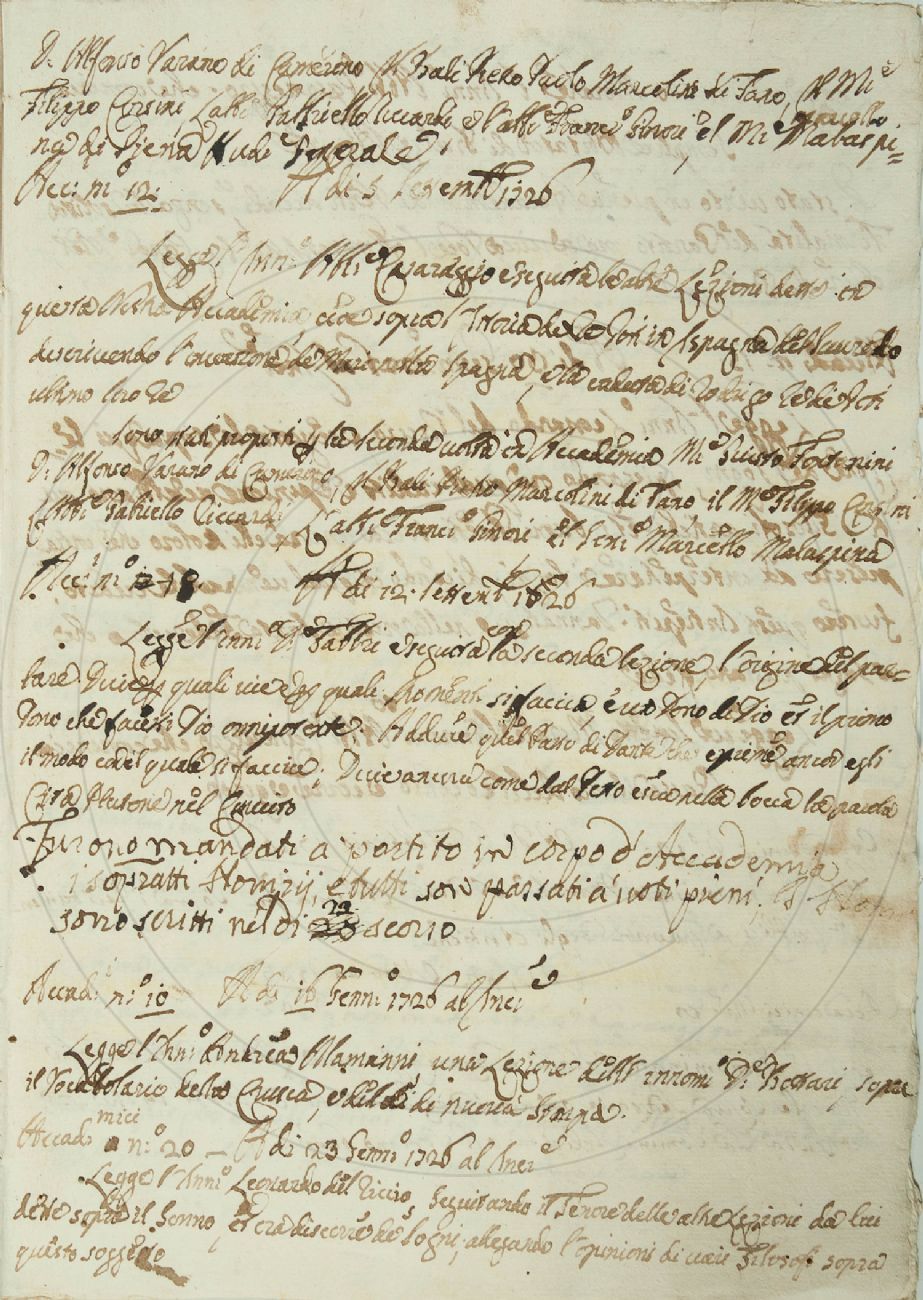 D. Alfonso Varano di Camerino Il Bali Pietro Paolo Marcolini di Fano, Il M.e
Filippo Corsini, L'abb.e Gabriello Riccardi e l'abb.e Franc.o Ginori e il M.e Marcello Malaspi=
na di Siena
Acc: n.o 12: A dì 5 Settemb. 1726
Legge l'Inn.o seguita le altre Lezioni dette in
questa Nostra Accademia, cioè sopra l'Istoria de Goti in Ispagna
descrivendo l' de Mori nella Spagna, e la caduta di Rodrigo Re de Goti
ultimo loro Re
Sono stati proposti p la seconda volta in Accademia M.e Giusto Fontanini
D. Alfonso Varano di Camerino, Il Bali Pietro Marcolini di Fano il M.e Filippo Corsini
L'abb.e Gabriello Riccardi L'abb.e Franc.o Ginori e il Marcello Malaspina
Acc: n.o 18 A dì 12: Settemb. 1726
Legge l'Inn.o D.e Fabbri e seguita con la seconda lezione, l'origine del par=
lare. Dice p quali vie e p quali stromenti si faccia, è un dono di Dio et il primo
dono che facessi Dio onnipotente. Adduce quel passo di Dante che esprime ancor egli
il modo con il quale si faccia; Dice ancora come dal petto esca nella bocca la parola
Cita Platone nel
Furono mandati a partito in corpo d'Accademia
i sopratti Nomi, e tutti son passati a voti pieni.
sono scritti nel dì 29 scorso
Accad: n.o 10 A dì 16 Genn.o 1726 al Inc.e
Legge l'Inn.o Andrea Alamanni una Lezione dell' innom.o D.e Bottari, sopra
il Vocabolario della Crusca, e del dì di nuova stampa.
Accad: mici n.o 20 – A dì 23 Genn.o 1726 al Inc.e
Legge l'Inn.o Leonardo del Riccio, seguitando il Tenore delle altre Lezioni da lui
dette sopra il Sonno, et ora discorre de sogni, allegando l'opinioni di varii Filosofi sopra
questo soggetto